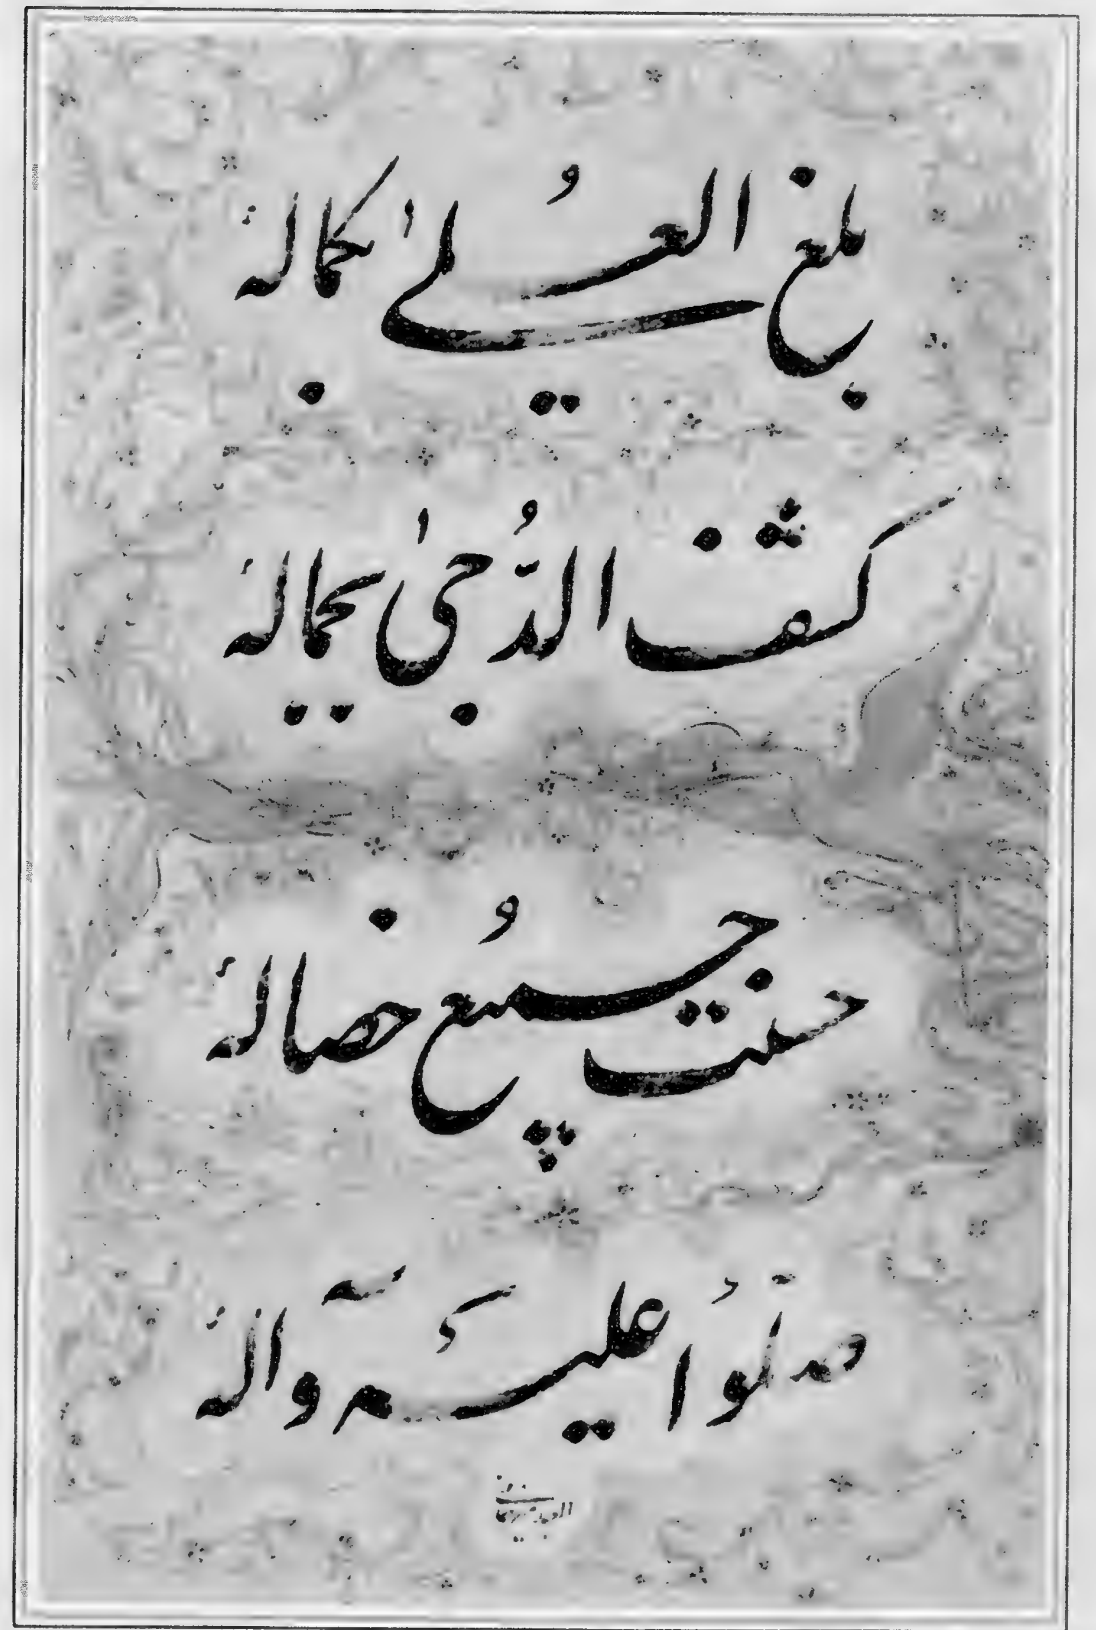 بلغ العُلےٰ بکمالهٖ
کشف الدُّجیٰ بجمالهٖ
حسنت جمیعُ خصالهٖ
صلّوُا علیهِ وآلهٖ